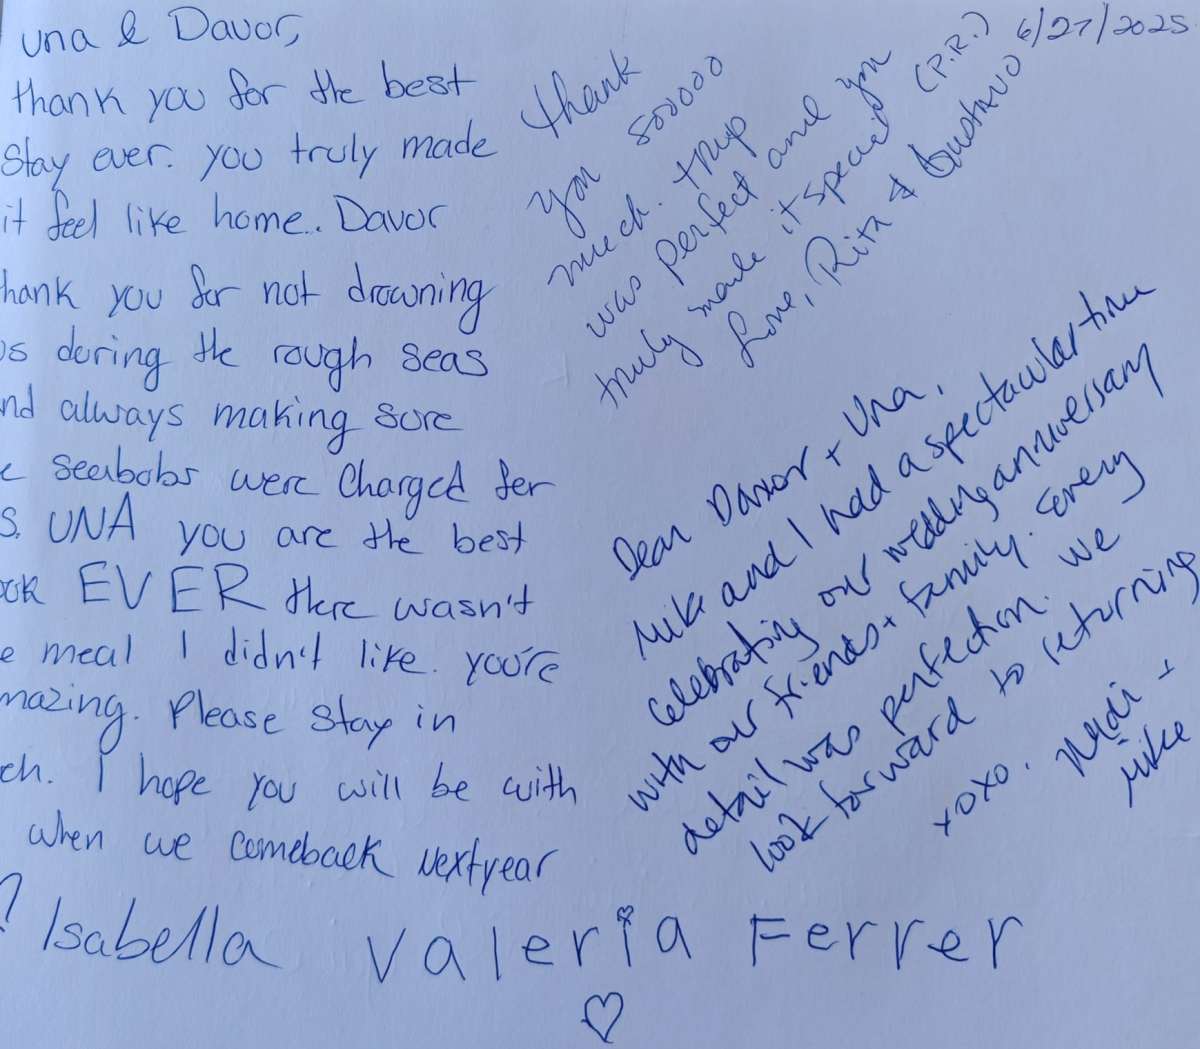 una & Davor,
thank you for the best
stay ever. you truly made
it feel like home.. Davor
hank you for not drowning
us during the rough seas
nd always making sure
e seabobs were charged for
s. UNA you are the best
ook EVER there wasn't
e meal I didn't like. you're
mazing. Please stay in
ch. I hope you will be with
when we comeback next year
Isabella Valeria Ferrer
6/27/2025
thank
you sooooo
much. trip
was perfect and you
truly made it special (P.R.)
Love, Rita & Gustavo
Dear Davor + Una,
Mike and I had a spectacular time
celebrating our wedding anniversary
with our friends + family. Every
detail was perfection. We
look forward to returning
xoxo.
Mike